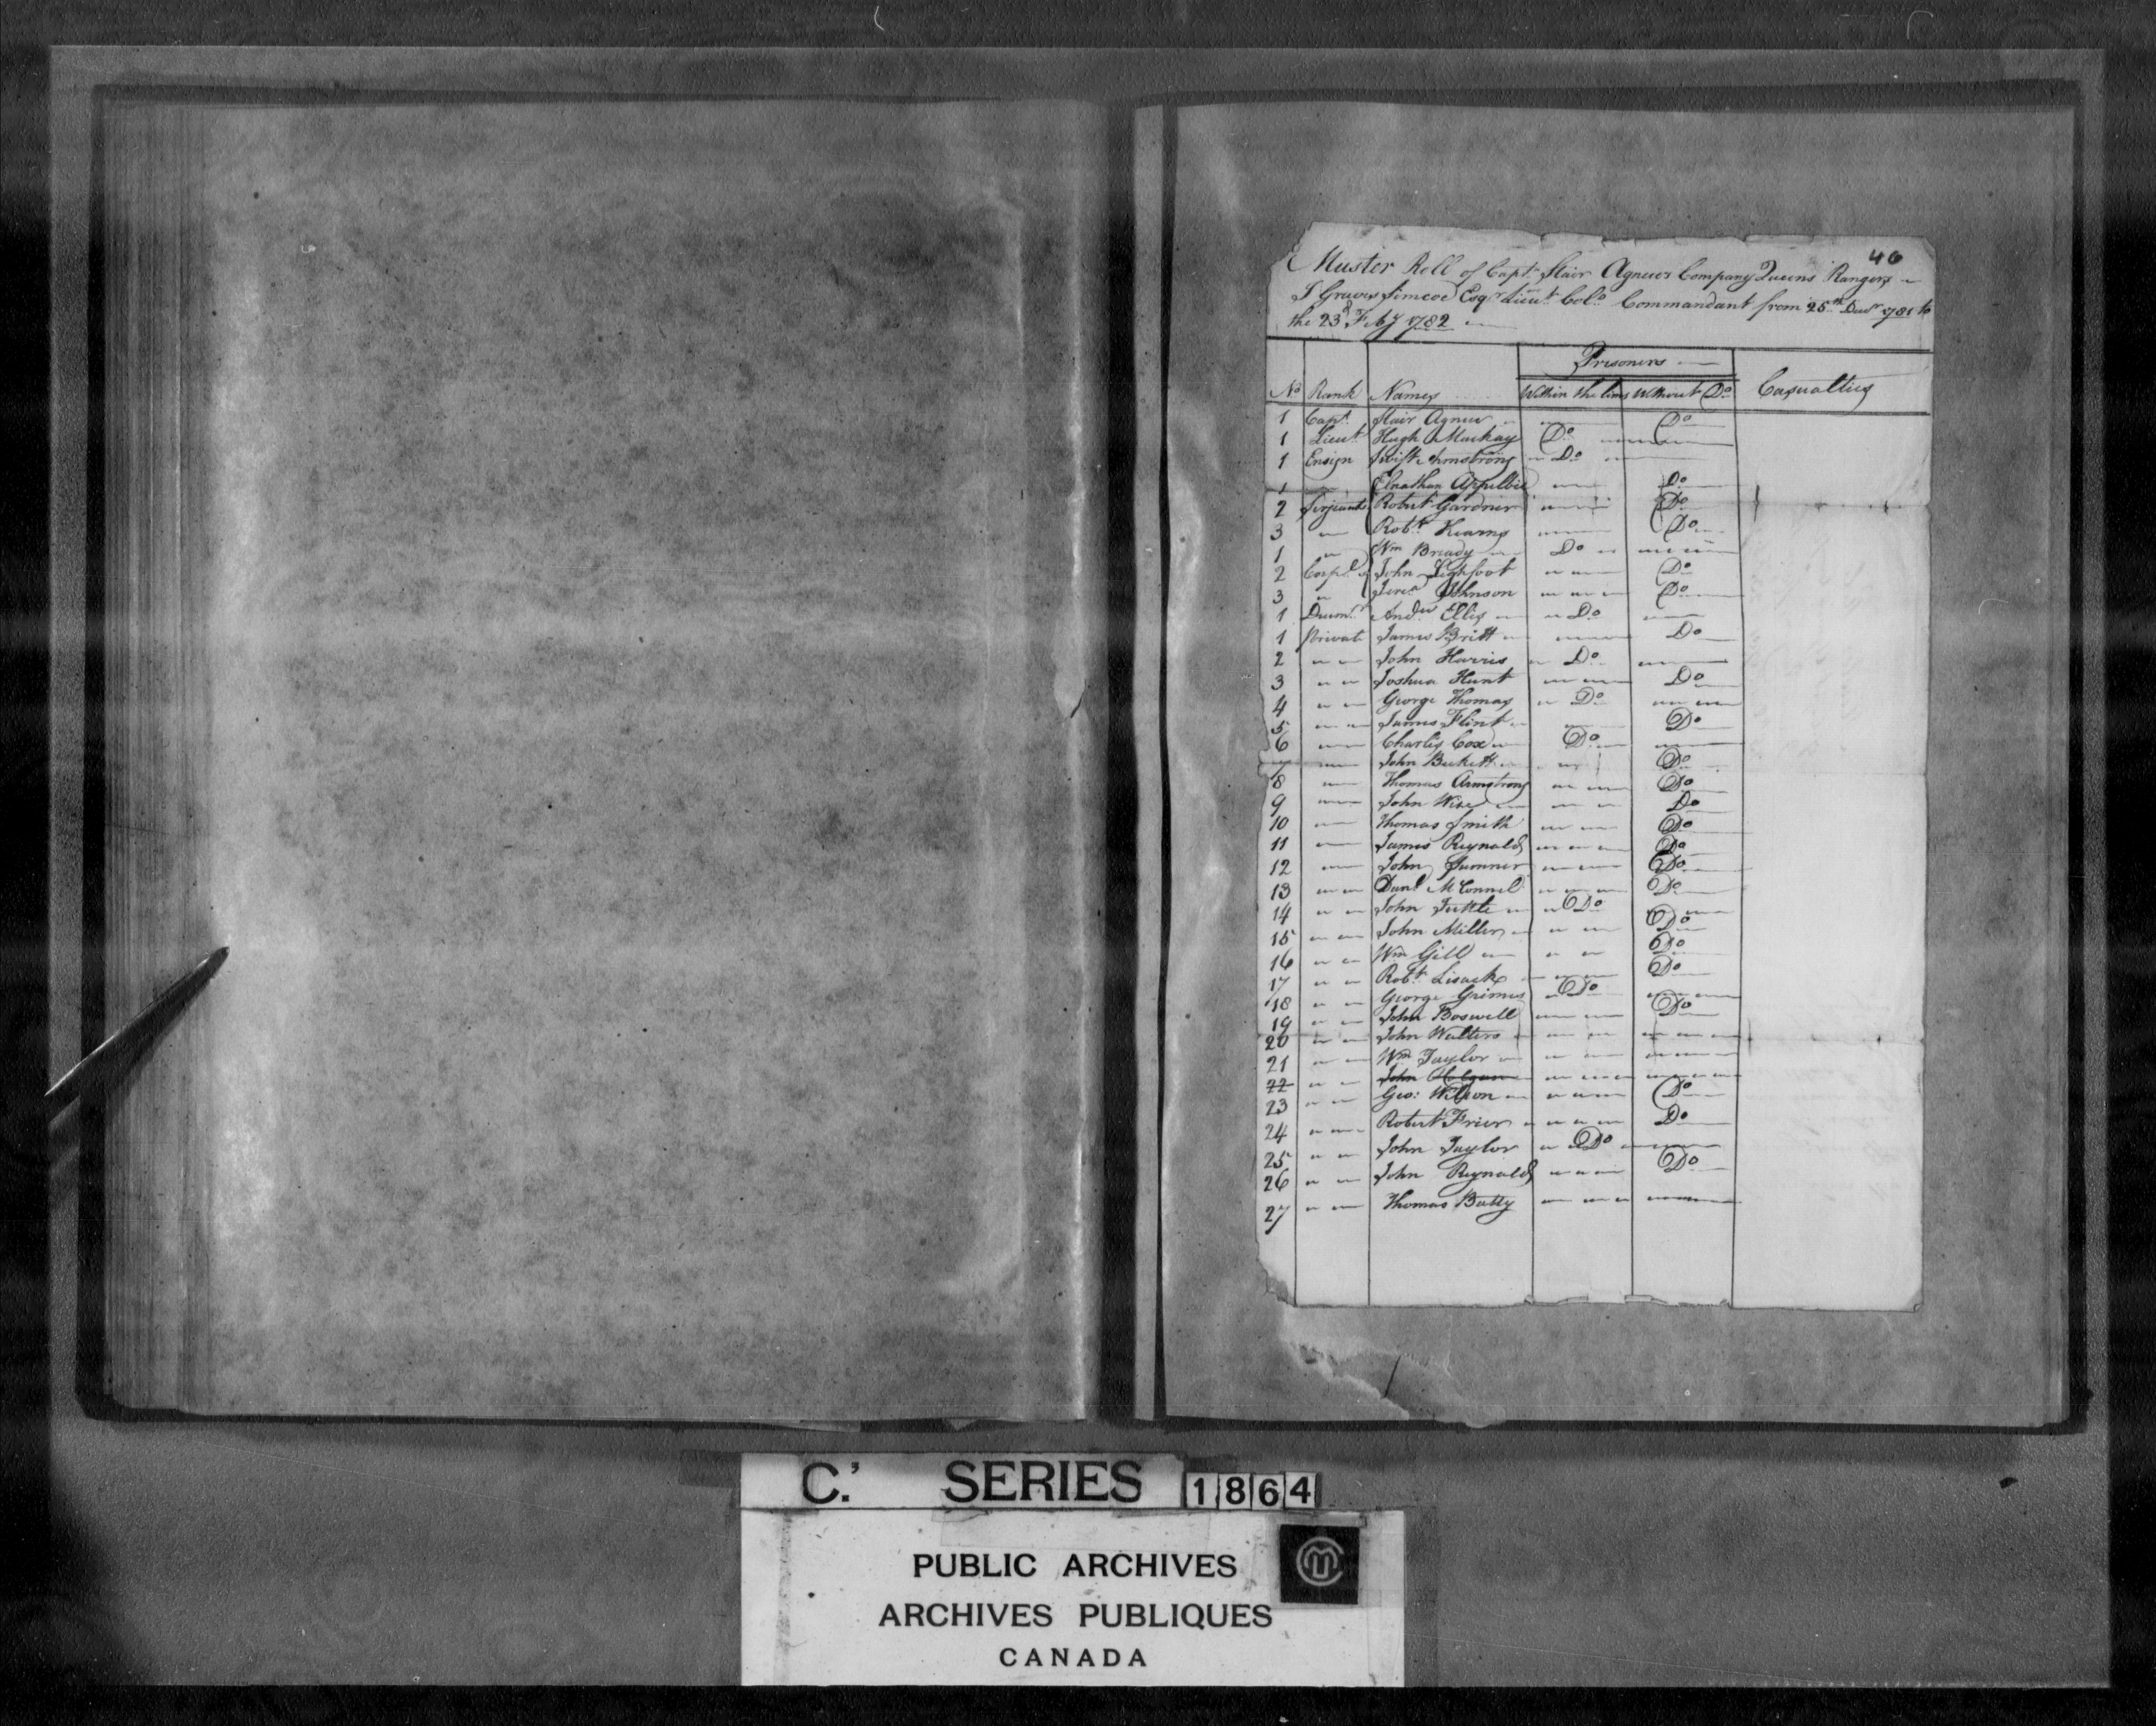 46
Muster Roll of Capt. Stair Agnews Company Queens Rangers
J Graves Simcoe Esqr Lieut. Colo. Commandant from 25th Decr 1781 to
the 23d Feby 1782
Prisoners
No Rank Names Within the lines Without Do Casualties
1 Capt. Stair Agnew Do
1 Lieut Hugh Mackay Do
1 Ensign Swift Armstrong Do
1 Elnathan Appelbie Do
2 Serjeants Robert Gardner Do
3 Robt. Kearns Do
1 Wm Bready Do
2 Corpl John Lighfoot Do
3 Johnson Do
1 Drumr Andw Ellis Do
1 Private James Britt Do
2 John Harris Do
3 Joshua Hunt Do
4 George Thomas Do
5 James Flint Do
6 Charles Cox Do
7 John Beckett Do
8 Thomas Armstrong Do
9 John Wise Do
10 Thomas Smith Do
11 James Reynolds Do
12 John Sumner Do
13 Danl McConnel Do
14 John Tuttle Do
15 John Miller Do
16 Wm Gill Do
17 Robt. Lisack Do
18 George Grimes Do
19 John Boswell Do
20 John Walters
21 Wm Taylor
22 John
23 Geo: Wilson Do
24 Robert Frier Do
25 John Taylor Do
26 John Reynolds Do
27 Thomas Batty
C.' SERIES 1864
PUBLIC ARCHIVES
ARCHIVES PUBLIQUES
CANADA